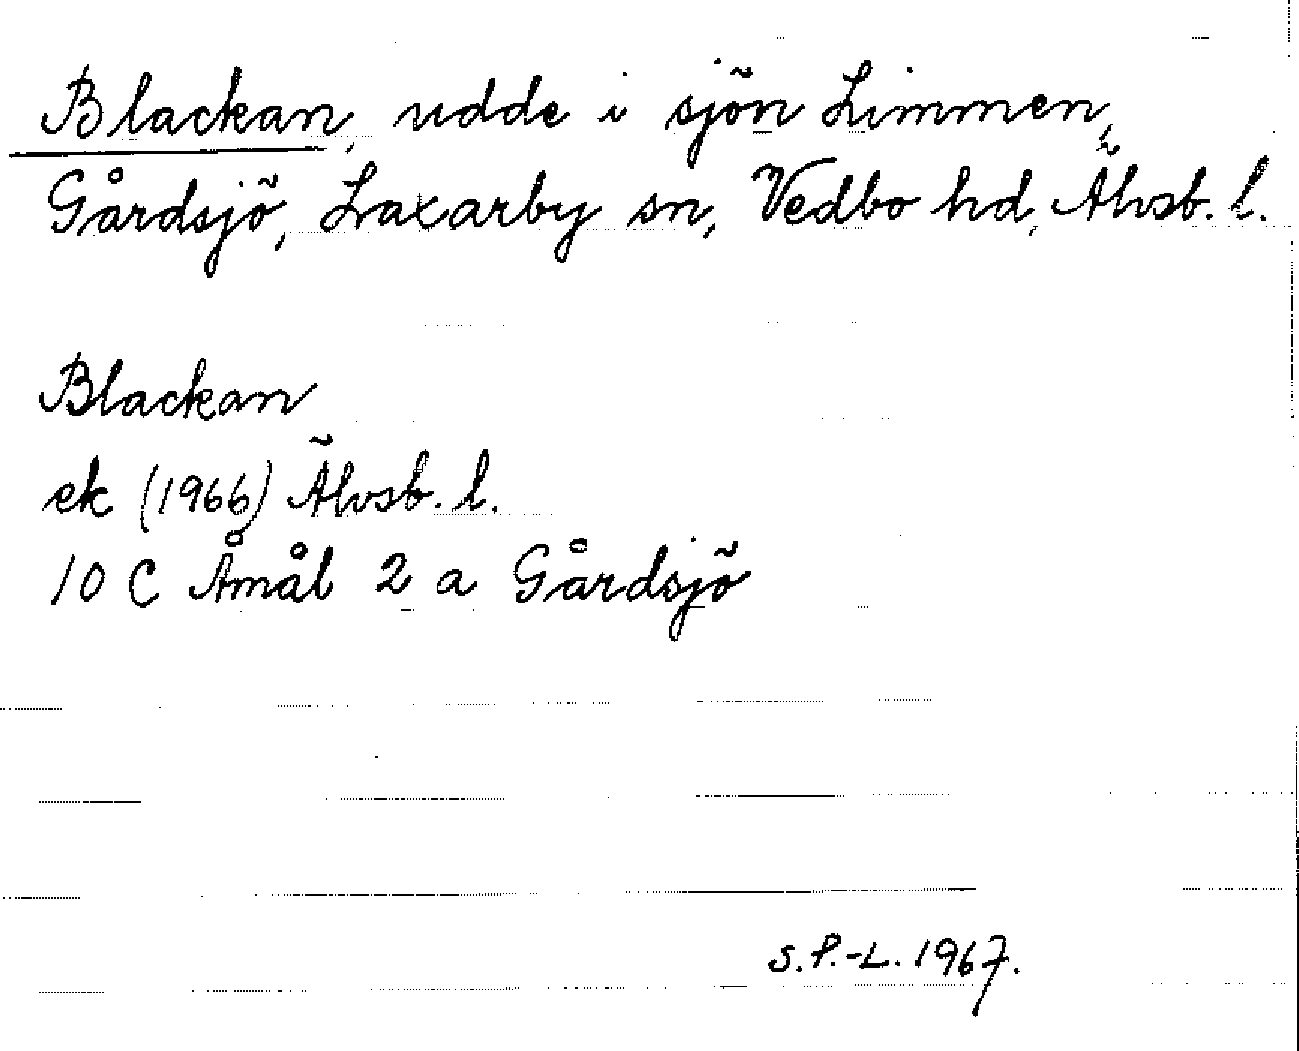 Blackan, udde i sjön Limmen,
Gårdsjö, Laxarby sn, Vedbo hd, Älvsb. l.
Blackan
ek (1966) Älvsb. l.
10 C Åmål 2 a Gårdsjö
S.P.-L. 1967.